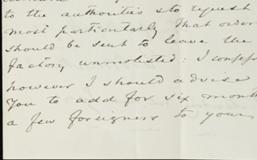 to the authorities to request
most particularly that orders
should be sent to leave the
factory unmolested: I
however I should advise
You to add for six
a few foreigners to your